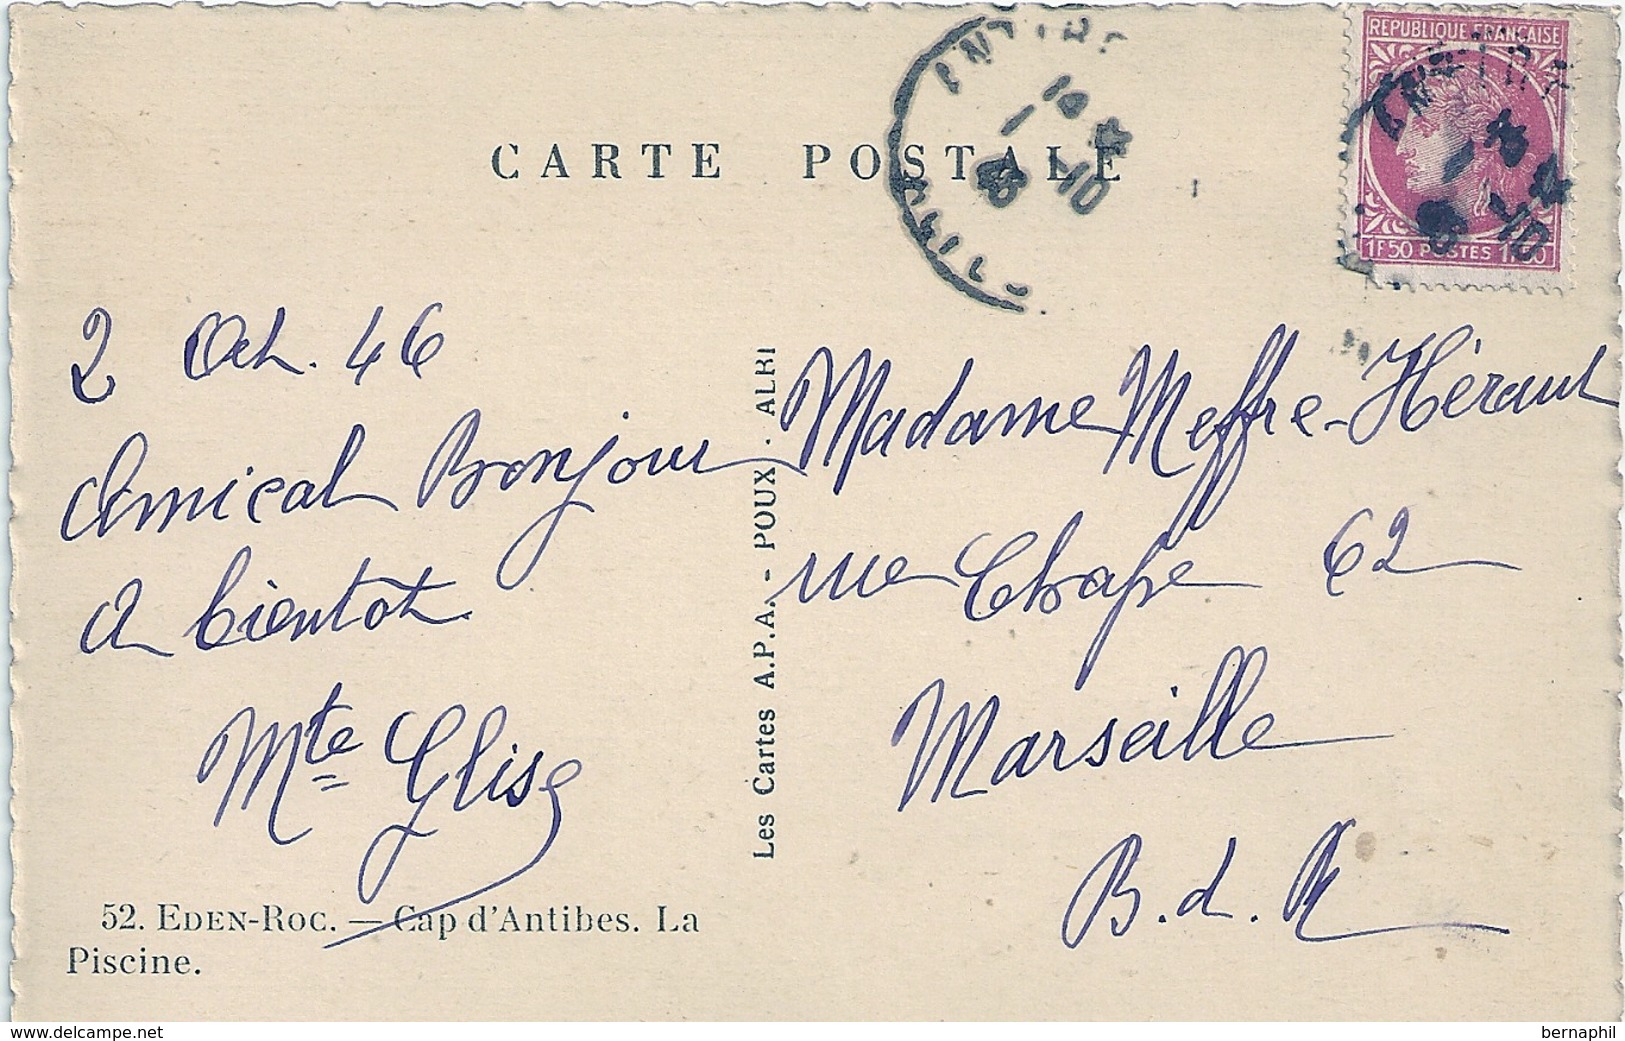 CARTE POSTALE
REPUBLIQUE FRANÇAISE
1F50 POSTES 1F50
2 Oct. 46
Amical Bonjour
A bientot
Mte Glise
Madame Meffre-Héraut
rue Chape 62
Marseille
B.d.R
Les Cartes A.P.A. - POUX. ALBI
52. EDEN-ROC. — Cap d'Antibes. La
Piscine.
www.delcampe.net
bernaphil